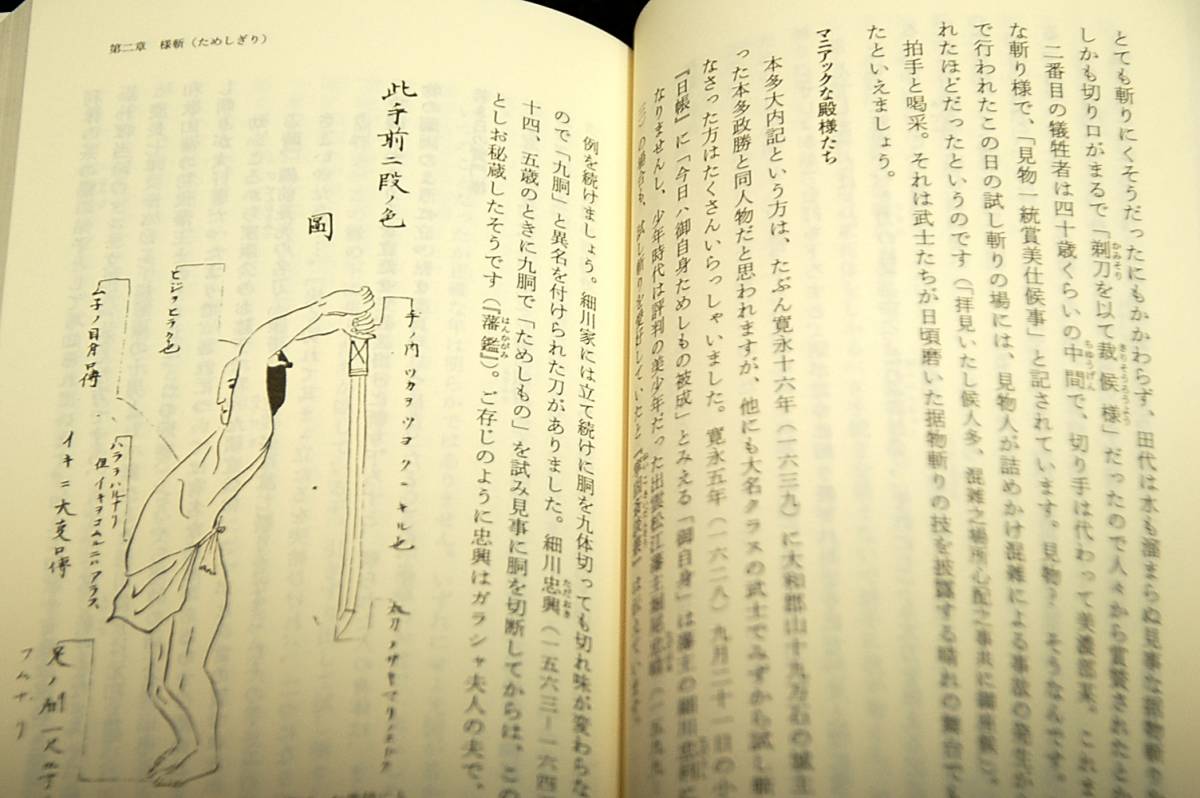 とても斬りにくそうだったにもかかわらず、田代は水も溜まらぬ見事な据物斬り
しかも切り口がまるで「剃刀を以て裁候様」だったので人々から賞賛されたとか
かみそり
きちそうろうよう
二番目の犠牲者は四十歳くらいの中間で、切り手は代わって美濃部某。これま
ちゅうげん
な斬り様で、「見物一統賞美仕候事」と記されています。見物？ そうなんです。
で行われたこの日の試し斬りの場には、見物人が詰めかけ混雑による事故の発生が
れたほどだったというのです（「拝見いたし候人多、混雑之場所心配之事共に御座候」。
拍手と喝采。それは武士たちが日頃磨いた据物斬りの技を披露する晴れの舞台で
たといえましょう。
マニアックな殿様たち
本多大内記という方は、たぶん寛永十六年（一六三九）に大和郡山十九万石の城主
った本多政勝と同人物だと思われますが、他にも大名クラスの武士でみずから試し斬
なさった方はたくさんいらっしゃいました。寛永五年（一六二八）九月二十一日の小
『日帳』に「今日ハ御自身ためしもの被成」とみえる「御自身」は藩主の細川忠利
なりませんし、少年時代は評判の美少年だった出雲松江藩主堀尾忠晴（一五九九
第二章 様斬（ためしぎり）
例を続けましょう。細川家には立て続けに胴を九体切っても切れ味が変わらな
ので「九胴」と異名を付けられた刀がありました。細川忠興（一五六三－一六四
ただおき
十四、五歳のときに九胴で「ためしもの」を試み見事に胴を切断してからは、この
としお秘蔵したそうです（『藩鑑』）。ご存じのように忠興はガラシャ夫人の夫で、
はんかがみ
此手前二段ノ色
圖
手ノ内 ツカヲ ツヨク ニキル也
ヒジヲヒラク也
ムネノ目身口傳
ハラヲハルナリ
但イキヲコムルニハアラス
イキニ大事口傳
フムナリ